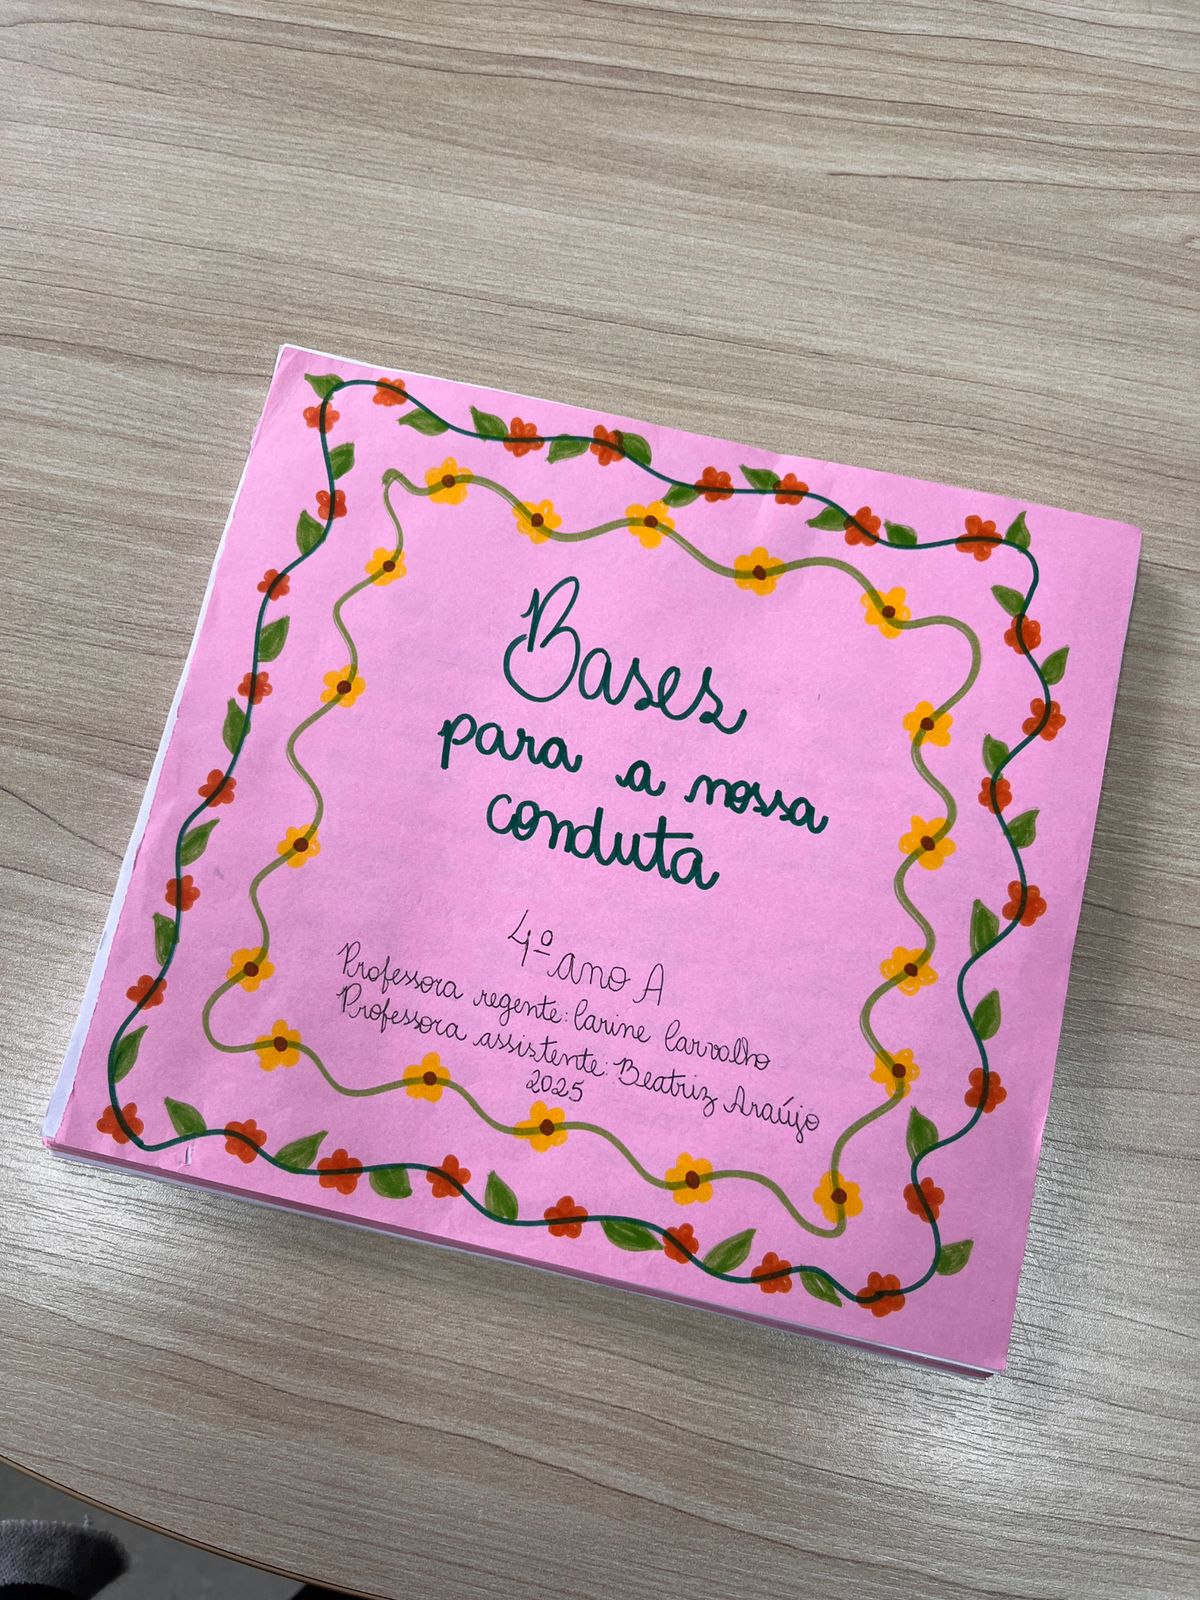 Bases
para a nossa
conduta
4º ano A
Professora regente: Carine Carvalho
Professora assistente: Beatriz Araújo
2025